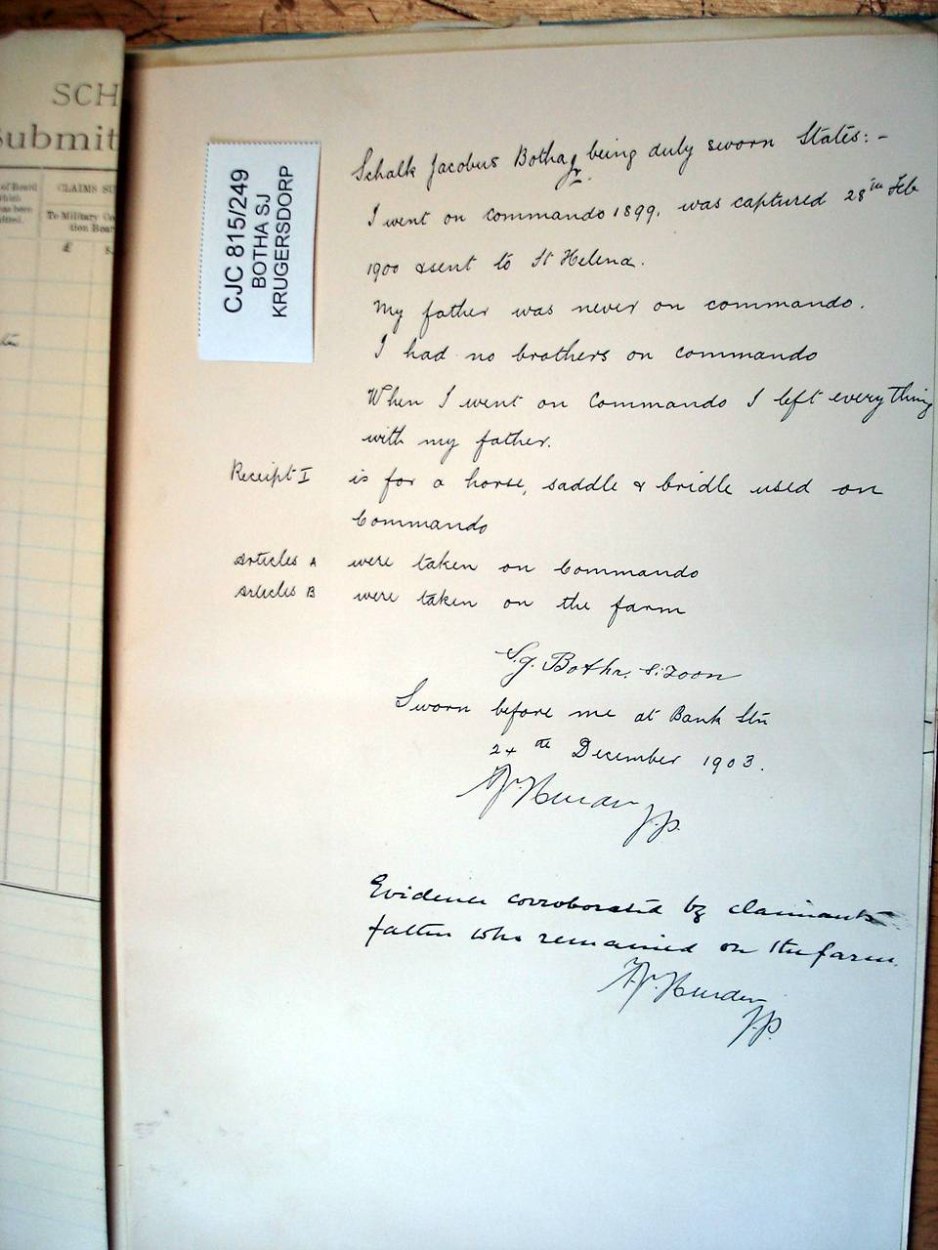 SCH
Submit
of Board
which
CLAIMS SU
To Military Co
tion Boar
£
CJC 815/249
BOTHA SJ
KRUGERSDORP
Schalk Jacobus Botha Jr. being duly sworn States:-
I went on commando 1899. was captured 28th Feb
1900 & sent to St Helena.
My father was never on commando.
I had no brothers on commando
When I went on Commando I left everything
with my father.
Receipt I is for a horse, saddle & bridle used on
Commando
Articles A were taken on Commando
Articles B were taken on the farm
Botha. S. Zoon
Sworn before me at Bank Stn
24th December 1903.
J.P.
Evidence corroborated by claimants
father who remained on the farm.
J.P.